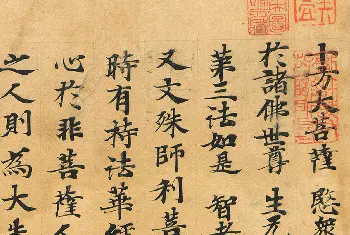 十方大菩薩 慜衆
於諸佛世尊 生无
第三法如是 智者
又文殊師利菩
時有持法華經
心於非菩薩人
之人則為大失